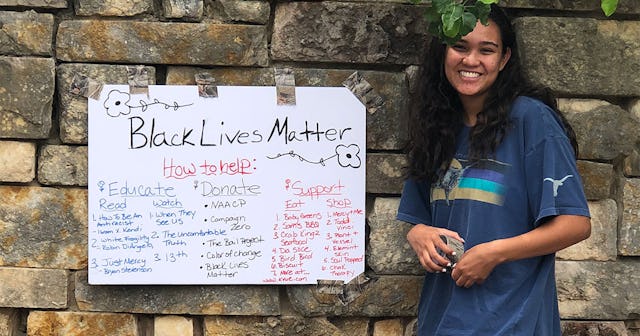 Black Lives Matter
How to help:
Educate
Read
1. How To Be An
Antiracist
- Ibram X. Kendi
2. White Fragility
- Robin DiAngelo
3. Just Mercy
- Bryan Stevenson
Watch
1. When They
See Us
2. The
Truth
3. 13th
Donate
• NAACP
• Campaign
Zero
• The Bail Project
• Color of change
• Black Lives
Matter
Support
Eat
1. Baby Greens
2. Sam's BBQ
3. Crab Kingz
Seafood
4. Da Slice
5. Bird Bird
Biscuit
7. More at...
Shop
1. Mercy+Me
2. Todd
3. Plant +
Vessel
4. Element
Skin
5. Soil
6.
Tribe